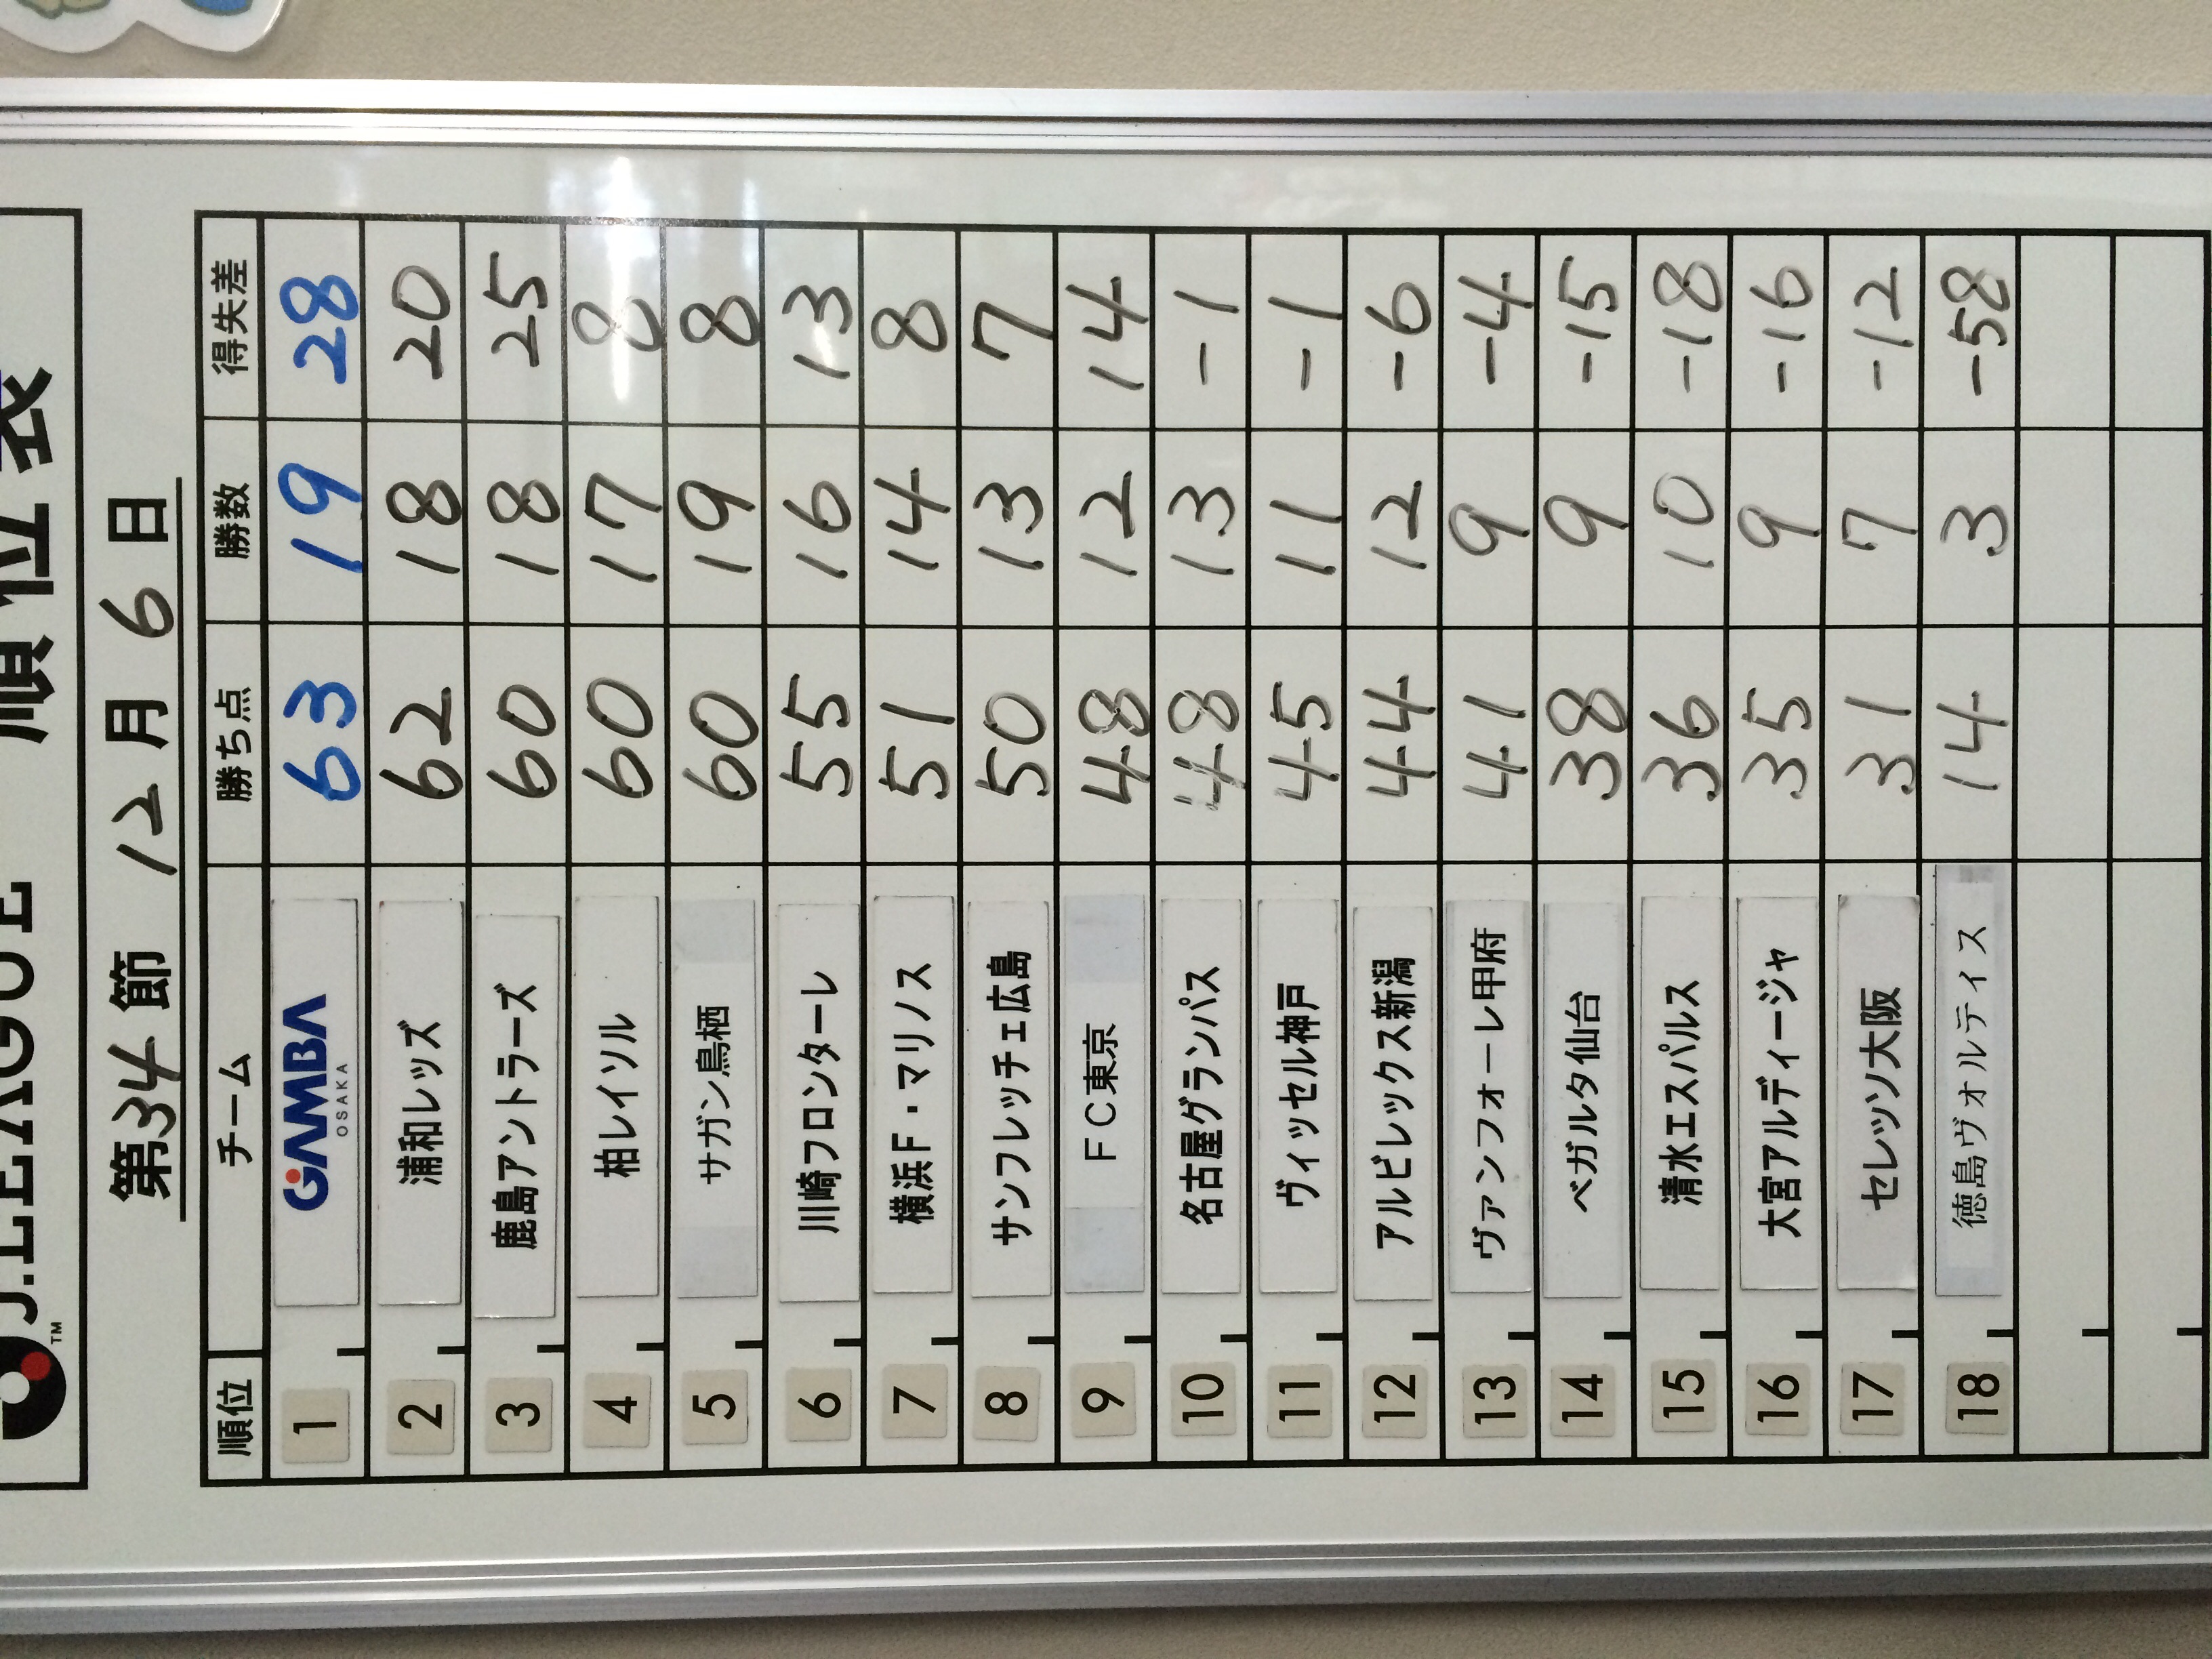 J.LEAGUE 順位表
TM
第34節 12月6日
順位 チーム 勝ち点 勝数 得失差
1 GAMBA OSAKA 63 19 28
2 浦和レッズ 62 18 20
3 鹿島アントラーズ 60 18 25
4 柏レイソル 60 17 8
5 サガン鳥栖 60 19 8
6 川崎フロンターレ 55 16 13
7 横浜F・マリノス 51 14 8
8 サンフレッチェ広島 50 13 7
9 FC東京 48 12 14
10 名古屋グランパス 48 13 -1
11 ヴィッセル神戸 45 11 -1
12 アルビレックス新潟 44 12 -6
13 ヴァンフォーレ甲府 41 9 -4
14 ベガルタ仙台 38 9 -15
15 清水エスパルス 36 10 -18
16 大宮アルディージャ 35 9 -16
17 セレッソ大阪 31 7 -12
18 徳島ヴォルティス 14 3 -58